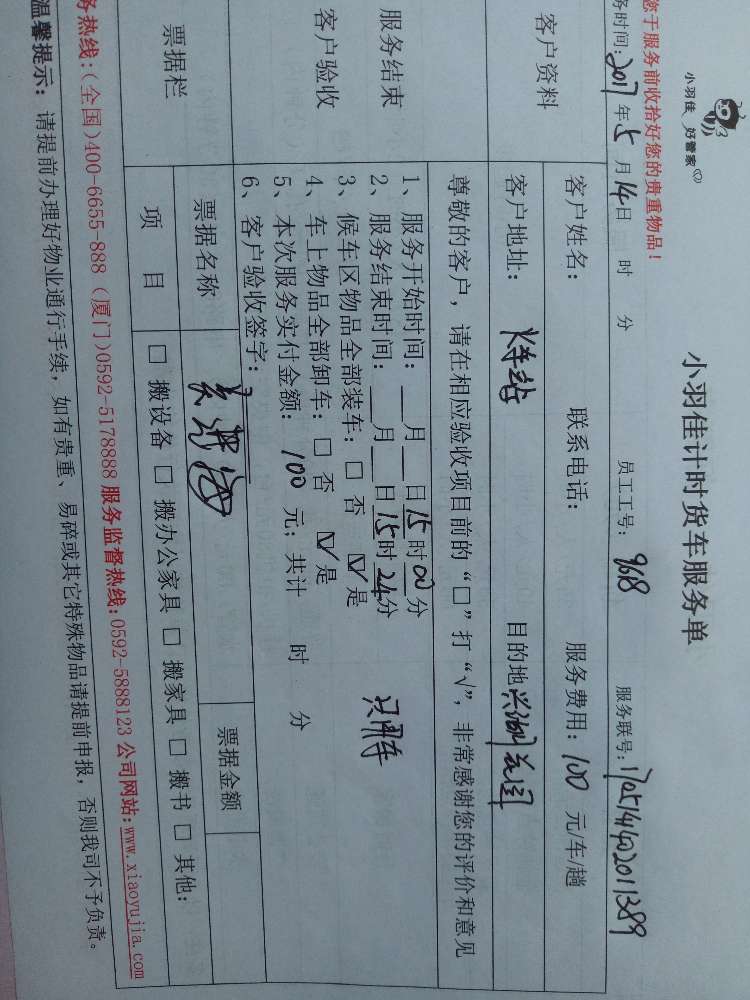 小羽佳 好管家
小羽佳计时货车服务单
您于服务前收拾好您的贵重物品！
务时间：2017年5月14日 时 分 员工工号：9618 服务联号：170514140201389
客户资料
客户姓名： 联系电话： 服务费用：100 元/车/趟
客户地址：火车站 目的地
服务结束
客户验收
尊敬的客户，请在相应验收项目前的“□”打“√”，非常感谢您的评价和意见
1、服务开始时间：__月__日15时00分
2、服务结束时间：__月__日15时24分
3、候车区物品全部装车：□ 否 ☑ 是
4、车上物品全部卸车：□ 否 ☑ 是
5、本次服务实付金额：100 元；共计 时 分
6、客户验收签字：
票据栏
票据名称 票据金额
项 目 □ 搬设备 □ 搬办公家具 □ 搬家具 □ 搬书 □ 其他:
务热线:(全国)400-6655-888 (厦门)0592-5178888 服务监督热线:0592-5888123 公司网站:www.xiaoyujia.com
温馨提示：请提前办理好物业通行手续，如有贵重、易碎或其它特殊物品请提前申报，否则我司不予负责。